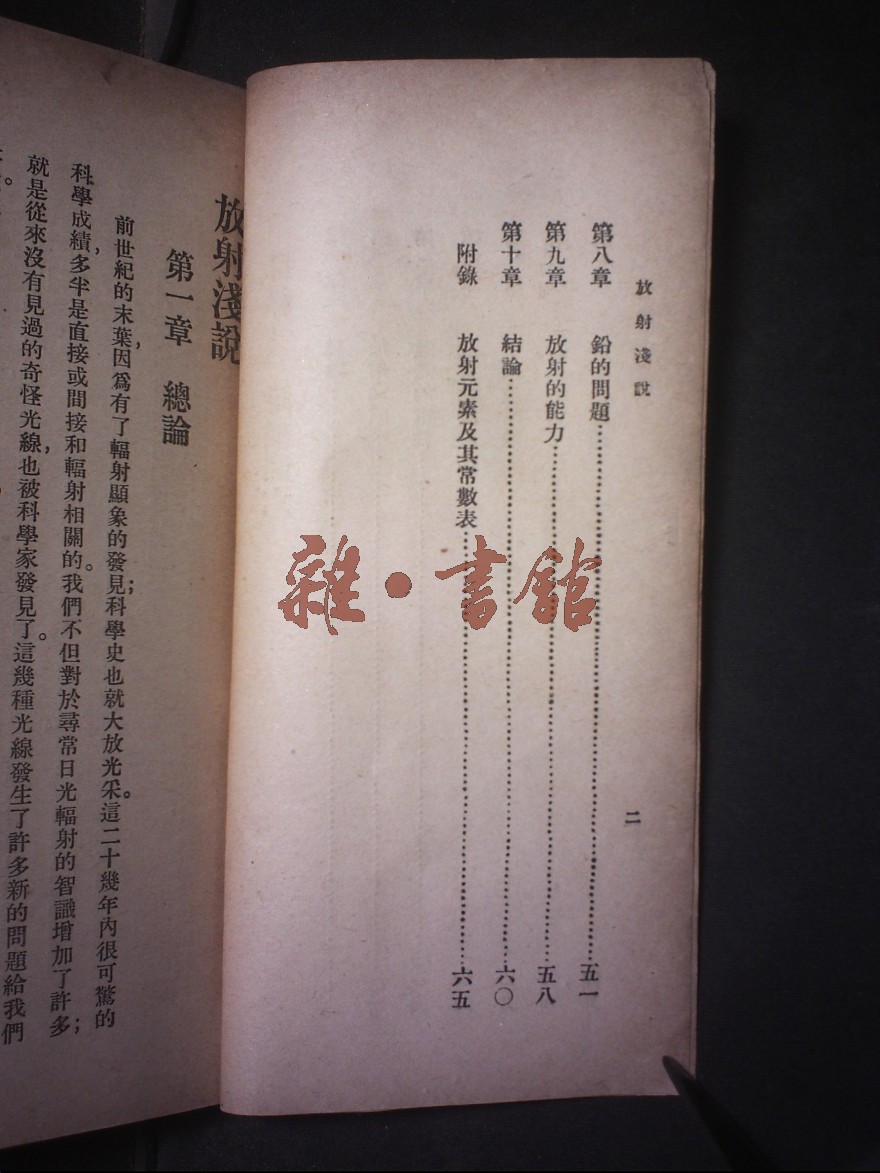 放射淺說
二
第八章 鉛的問題……五一
第九章 放射的能力……五八
第十章 結論……六〇
附錄 放射元素及其常數表……六五
雜·書館
放射淺說
第一章 總論
前世紀的末葉,因爲有了輻射顯象的發見;科學史也就大放光采。這二十幾年內很可驚的
科學成績,多半是直接或間接和輻射相關的。我們不但對於尋常日光輻射的智識增加了許多;
就是從來沒有見過的奇怪光線,也被科學家發見了。這幾種光線發生了許多新的問題給我們